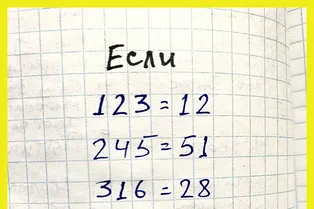 Если
123 = 12
245 = 51
316 = 28